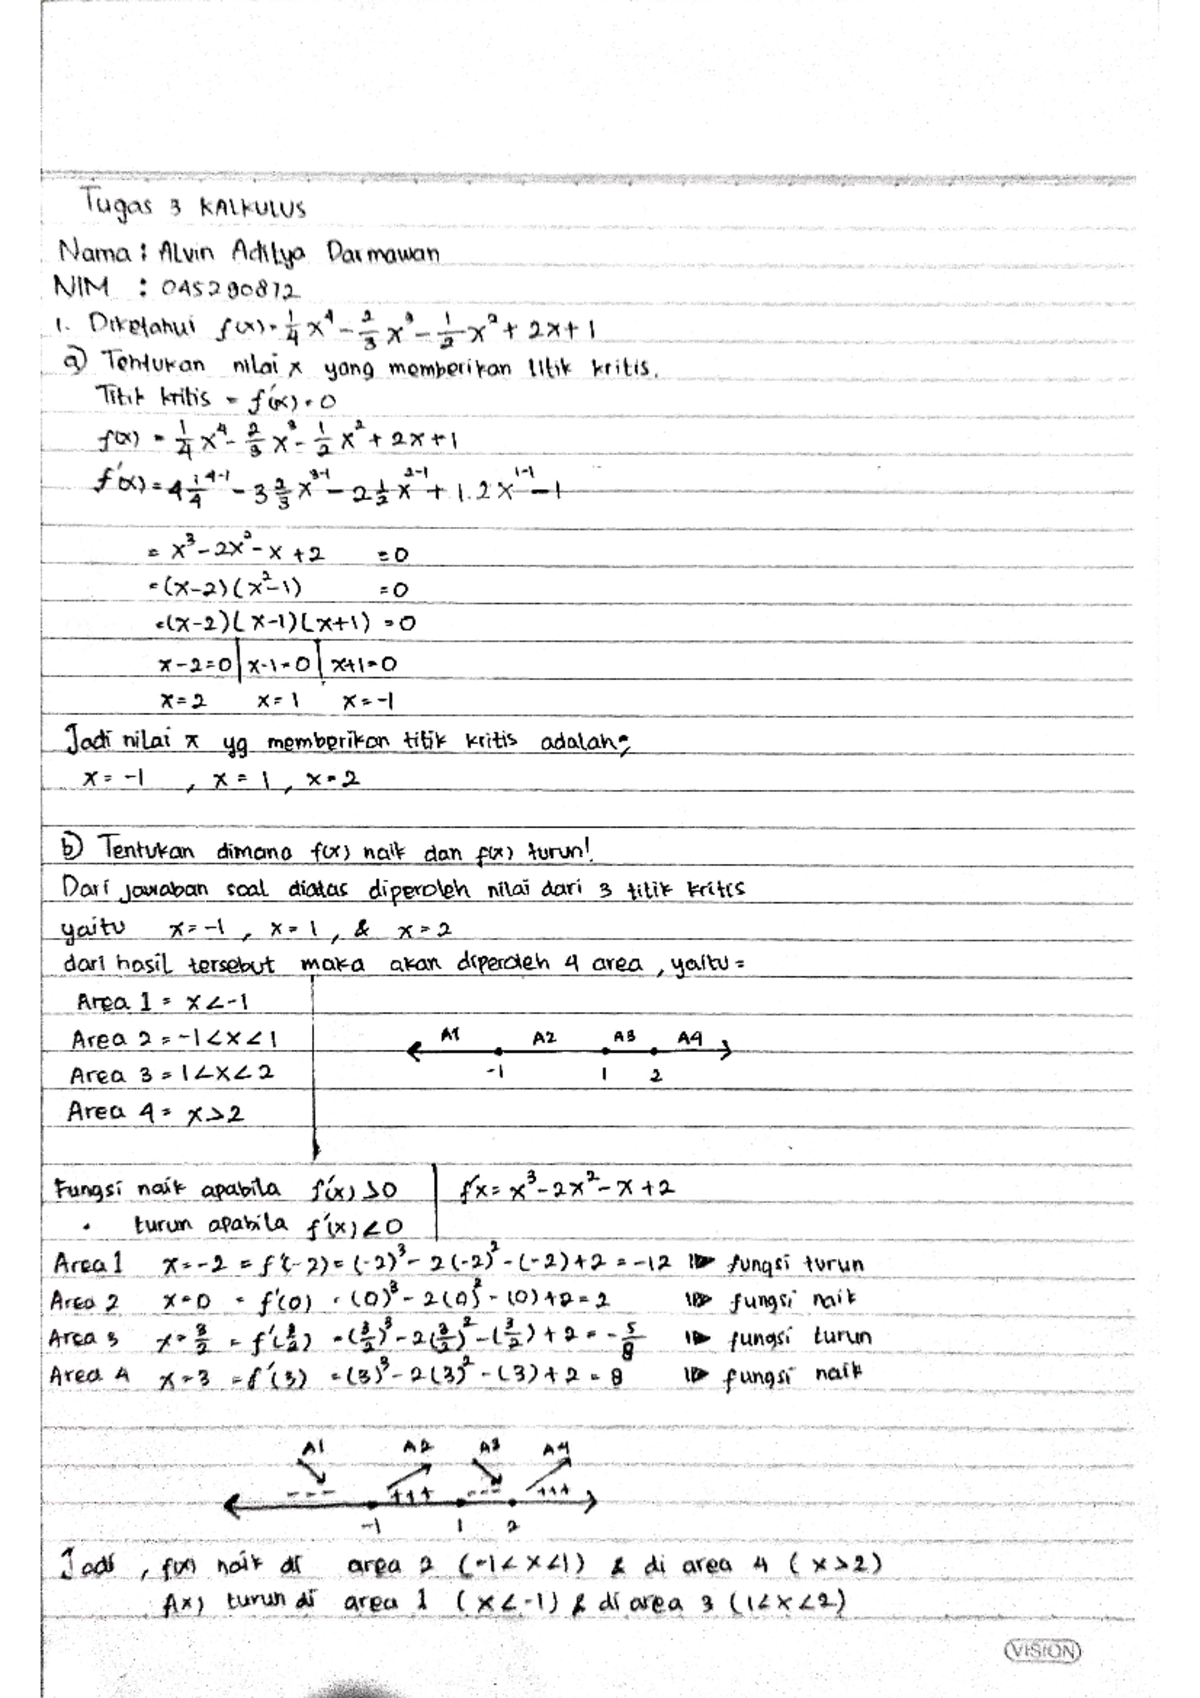 Tugas 3 KALKULUS
Nama : Alvin Aditya Darmawan
NIM : 045290872
1. Diketahui f(x) = 1/4 x⁴ - 2/3 x³ - 1/2 x² + 2x + 1
a) Tentukan nilai x yang memberikan titik kritis.
Titik kritis = f'(x) = 0
f(x) = 1/4 x⁴ - 2/3 x³ - 1/2 x² + 2x + 1
f'(x) = 4 1/4 ⁴⁻¹ - 3 2/3 x³⁻¹ - 2 1/2 x²⁻¹ + 1.2x¹⁻¹ - 1
= x³ - 2x² - x + 2 = 0
= (x-2)(x²-1) = 0
= (x-2)(x-1)(x+1) = 0
x-2=0 | x-1=0 | x+1=0
x=2 x=1 x=-1
Jadi nilai x yg memberikan titik kritis adalah;
x = -1 , x = 1 , x = 2
b) Tentukan dimana f(x) naik dan f(x) turun!
Dari jawaban soal diatas diperoleh nilai dari 3 titik kritis
yaitu x = -1 , x = 1 , & x = 2
dari hasil tersebut maka akan diperoleh 4 area , yaitu =
Area 1 = x < -1
Area 2 = -1 < x < 1 A1 A2 A3 A4
Area 3 = 1 < x < 2 -1 1 2
Area 4 = x > 2
Fungsi naik apabila f'(x) > 0 | f'x = x³ - 2x² - x + 2
" turun apabila f'(x) < 0
Area 1 x = -2 = f'(-2) = (-2)³ - 2(-2)² - (-2) + 2 = -12 fungsi turun
Area 2 x = 0 = f'(0) = (0)³ - 2(0)² - (0) + 2 = 2 fungsi naik
Area 3 x = 3/2 = f'(3/2) = (3/2)³ - 2(3/2)² - (3/2) + 2 = -5/8 fungsi turun
Area 4 x = 3 = f'(3) = (3)³ - 2(3)² - (3) + 2 = 8 fungsi naik
A1 A2 A3 A4
--- +++ --- +++
-1 1 2
Jadi , f(x) naik di area 2 (-1 < x < 1) & di area 4 ( x > 2)
f(x) turun di area 1 (x < -1) & di area 3 (1 < x < 2)
VISION